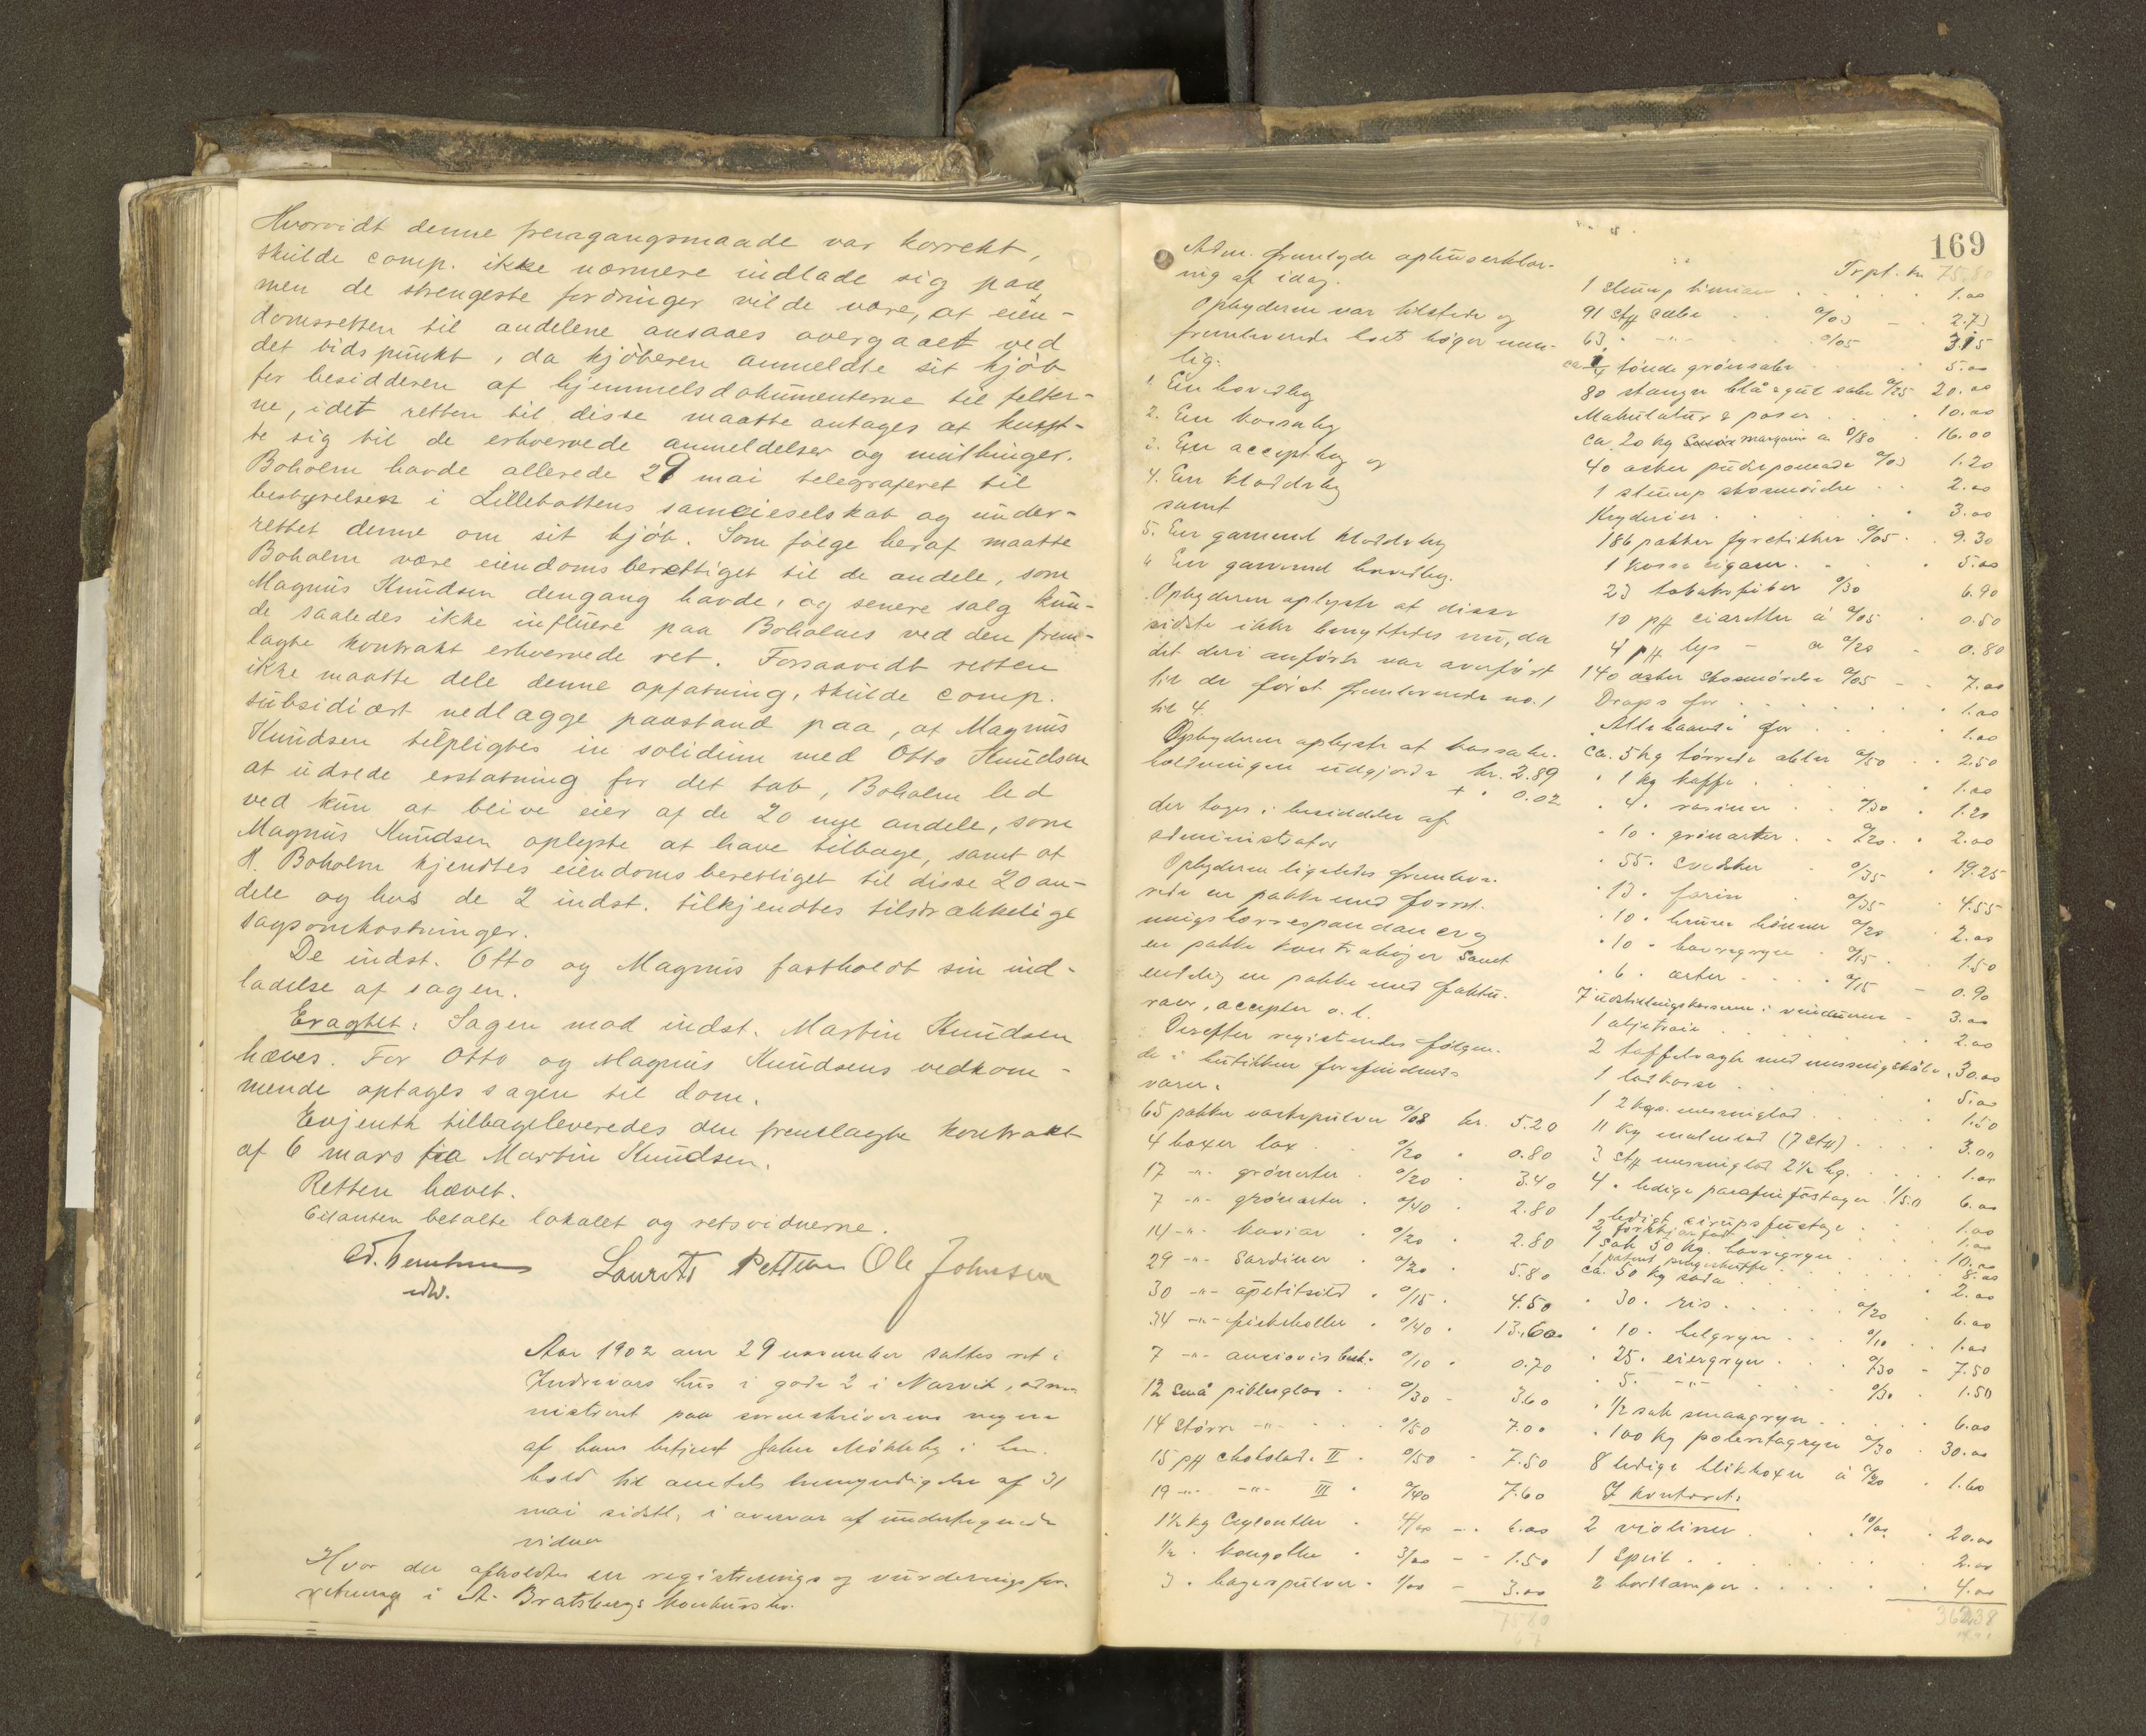 Hvorvidt denne fremgangsmaade var korrekt,
skulde comp. ikke nærmere indlade sig paa,
men de strengeste fordringer vilde være, at eien-
domsretten til andelene ansaaes overgaaet ved
det tidspunkt, da kjøberen anmeldte sit kjøb
for besidderen af hjemmelsdokumenterne til felter-
ne, idet retten til disse maatte antages at knyt-
te sig til de erhvervede anmeldelser og muthinger.
Boholm havde allerede 29 mai telegraferet til
bestyrelsen i Lillebottens sameieselskab og under-
rettet denne om sit kjøb. Som følge heraf maatte
Boholm være eiendomsberettiget til de andele, som
Magnus Knudsen dengang havde, og senere salg kun-
de saaledes ikke influere paa Boholms ved den frem-
lagte kontrakt erhvervede ret. Forsaavidt retten
ikke maatte dele denne opfatning, skulde comp.
subsidiært nedlægge paastand paa, at Magnus
Knudsen tilpligtes in solidum med Otto Knudsen
at udrede erstatning for det tab, Boholm led
ved kun at blive eier af de 20 nye andele, som
Magnus Knudsen oplyste at have tilbage, samt at
H. Boholm kjendtes eiendomsberettiget til disse 20 an-
dele og hos de 2 indst. tilkjendtes tilstrækkelige
sagsomkostninger.
De indst. Otto og Magnus fastholdt sin ind-
ladelse af sagen.
Eragtet: Sagen mod indst. Martin Knudsen
hæves. For Otto og Magnus Knudsens vedkom-
mende optages sagen til dom.
Evjenth tilbageleveredes den fremlagte kontrakt
af 6 mars fra Martin Knudsen.
Retten hævet.
Citanten betalte lokalet og retsvidnerne.
Laurits Pettersen Ole Johnsen
Aar 1902 den 29 november sattes ret i
hus i gade 2 i Narvik, admi-
nistreret paa sorenskriverens vegne
af hans betjent John Mökleby i hen-
hold til amtets bemyndigelse af 31
mai sidstl. i overvær af undertegnede
vidner
Hvor da afholdtes en registrerings og vurderingsfor-
retning i A. Bratsbergs konkursbo.
169
Adm. fremlagde opbudserklæ-
ring af idag.
Opbyderen var tilstede og
fremleverede boets bøger nem-
lig:
1. En hovedbog
2. En kassabog
3. En acceptbog og
4. En kladdebog
samt
5. En gammel kladdebog
6 En gammel hovedbog.
Opbyderen oplyste at disse
sidste ikke benyttedes nu, da
det deri anførte var overført
til de først fremleverede no. 1
til 4.
Opbyderen oplyste at kassabe-
holdningen udgjorde kr. 2.89
+ " 0.02
der toges i besiddelse af
administrator
Opbyderen ligeledes fremleve-
rede en pakke med forret-
ningskorrespondance og
en pakke kontrabøger samt
endelig en pakke med faktu-
raer, accepter o. l.
Derefter registreredes følgen-
de i butikken forefindende
varer:
65 pakker vaskepulver 0/08 kr. 5.20
4 boxer lax 0/20 " 0.80
17 -"- grönerter 0/20 " 3.40
7 -"- grönerter 0/40 " 2.80
14 -"- kaviar 0/20 " 2.80
29 -"- sardiner 0/20 " 5.80
30 -"- apetitsild 0/15 " 4.50
34 -"- fiskeboller 0/40 " 13.60
7 -"- anciovis 0/10 " 0.70
12 små piklesglas 0/30 - 3.60
14 större -"- 0/50 7.00
15 pk chokolade II 0/50 " 7.50
19 -"- -"- III 0/40 7.60
1½ kg Ceylonthe 4/00 - 6.00
½ " kongothe 3/00 - 1.50
3 " bagerpulver 1/00 - 3.00
75.80
Trpt. kr 75.80
1 slump timian 1.00
91 stk sæbe 0/03 - 2.73
63 " -"- 0/05 3.15
ca ¼ tönde grönsæbe 5.00
80 stanger blå & gul sæbe 0/25 20.00
Makulatur & poser 10.00
ca 20 kg margarin a 0/80 16.00
40 æsker pudsepomade 0/03 1.20
1 slump skosmörelse 2.00
Kryderier 3.00
186 pakker fyrstikker 0/05 9.30
1 kasse cigarer 5.00
23 tobakspiber 0/30 6.90
10 pk cigaretter á 0/05 0.50
4 pk lys - a 0/20 - 0.80
140 æsker skosmörelse 0/05 - 7.00
Drops for 1.00
Allehaande for 1.00
ca. 5 kg tørrede æbler 0/50 2.50
" 1 kg kaffe 1.00
" 4 " rosiner 0/30 " 1.20
" 10 " grönerter 0/20 " 2.00
" 55 " svedsker 0/35 " 19.25
" 13 " farin 0/35 4.55
" 10 " brune bönner 0/20 2.00
" 10 " havregryn 0/15 1.50
" 6 " erter 0/15 - 0.90
7 udstillingskasser i vinduerne - 3.00
2.00
2 taffelvægte med messingskåle 30.00
1 5.00
1 2 kgs. messinglod 1.50
11 kg malmlod (7 stk) 3.00
3 stk messinglod 2½ kg. 1.00
4 " ledige parafinfustager 1/50 6.00
1 ledigt sirupsfustage 1.00
1.00
1 sæk 50 kg. havregryn 10.00
1 patent pengeskuffe 8.00
ca. 50 kg soda 2.00
" 30 " ris 0/20 6.00
" 10 " helgryn 0/10 1.00
" 25 " eiergryn 0/30 - 7.50
" 5 " -"- 0/30 1.50
" ½ sæk smaagryn 6.00
" 100 kg polentagryn 0/30 30.00
8 ledige blikboxer á 0/20 1.60
I kontoret:
2 violiner 10/00 20.00
1 speil 2.00
2 bordlamper 4.00